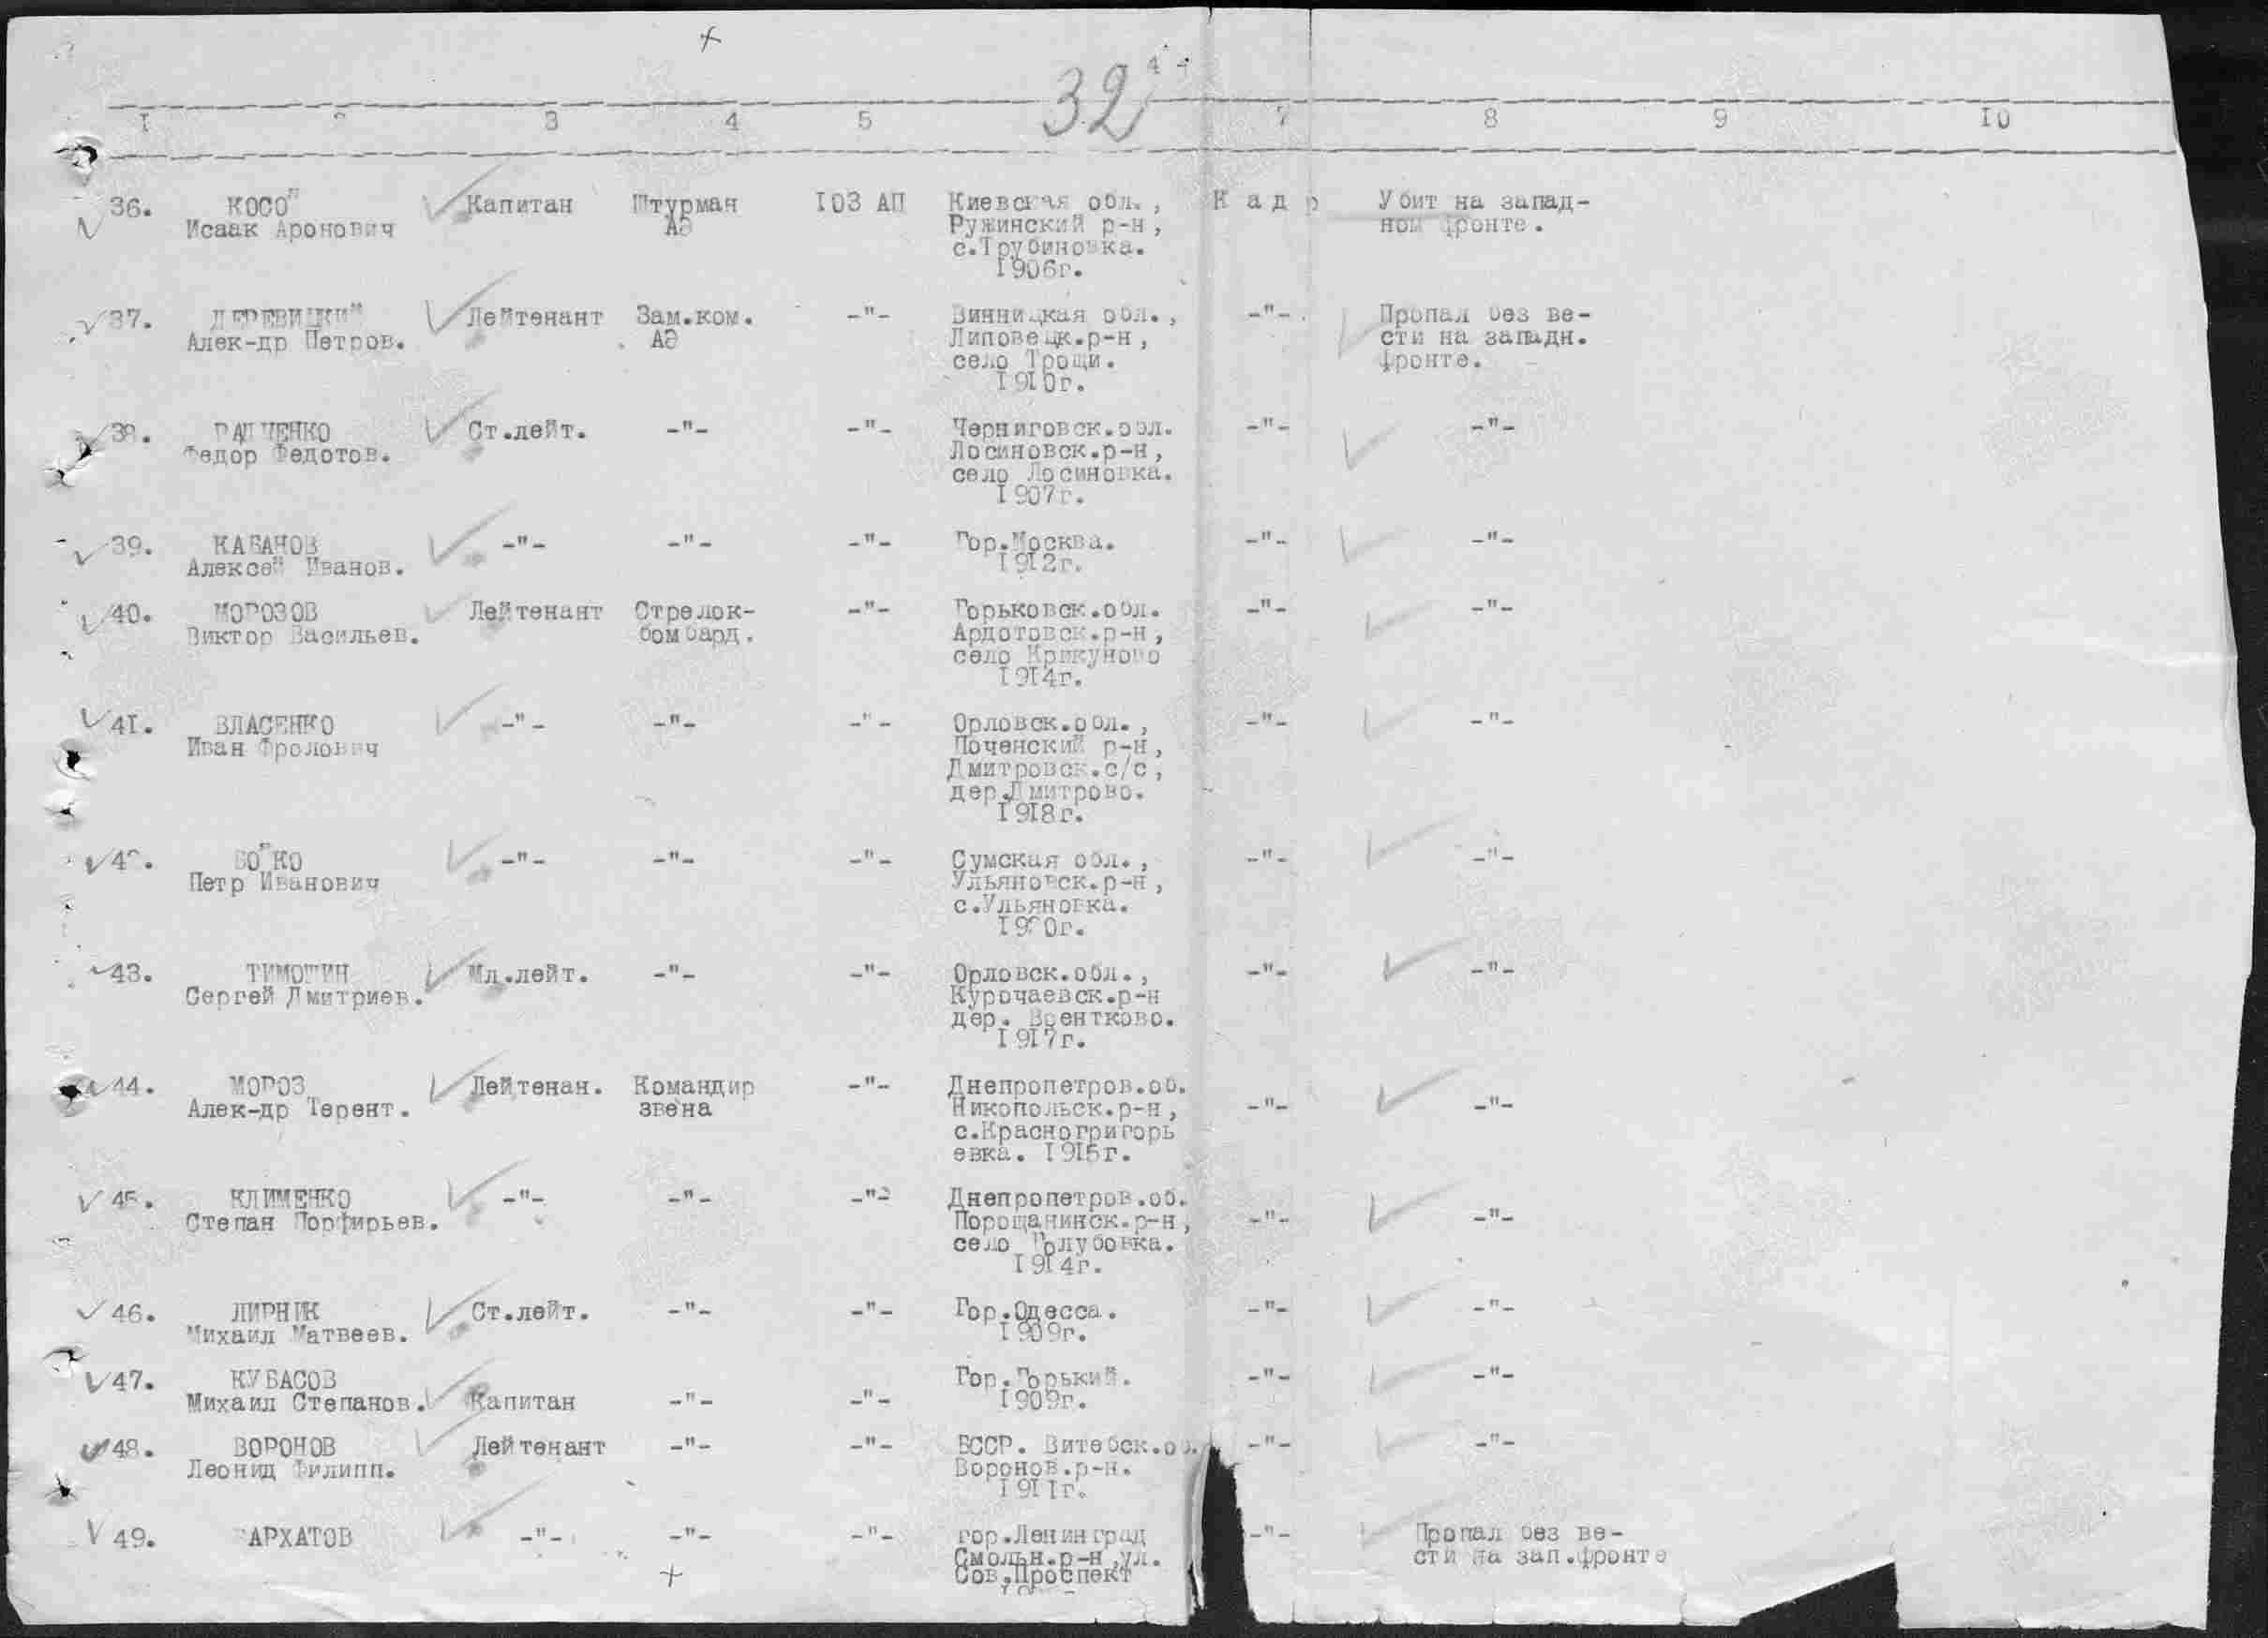 32
4 -
I 3 4 5 7 8 9 IO
36. КОСОЙ Капитан Штурман I03 АП Киевская обл., К а д р Убит на запад-
Исаак Аронович АЭ Ружинский р-н, ном фронте.
с.Трубиновка.
I906г.
37. ДЕРЕВИЦКИЙ Лейтенант Зам.ком. -"- Винницкая обл., -"- Пропал без ве-
Алек-др Петров. АЭ Липовецк.р-н, сти на западн.
село Трощи. фронте.
I9I0г.
38. РАДЧЕНКО Ст.лейт. -"- -"- Черниговск.обл. -"- -"-
Федор Федотов. Лосиновск.р-н,
село Лосиновка.
I907г.
39. КАБАНОВ -"- -"- -"- Гор.Москва. -"- -"-
Алексей Иванов. I9I2г.
40. МОРОЗОВ Лейтенант Стрелок- -"- Горьковск.обл. -"- -"-
Виктор Васильев. бомбард. Ардотовск.р-н,
село Крикуново
I9I4г.
4I. ВЛАСЕНКО -"- -"- -"- Орловск.обл., -"- -"-
Иван Фролович Поченский р-н,
Дмитровск.с/с,
дер.Дмитрово.
I9I8г.
42. БОЙКО -"- -"- -"- Сумская обл., -"- -"-
Петр Иванович Ульяновск.р-н,
с.Ульяновка.
I920г.
43. ТИМОШИН Мл.лейт. -"- -"- Орловск.обл., -"- -"-
Сергей Дмитриев. Курочаевск.р-н
дер.
I9I7г.
44. МОРОЗ Лейтенан. Командир -"- Днепропетров.об.
Алек-др Терент. звена Никопольск.р-н, -"- -"-
с.Красногригорь
евка. I9I5г.
45. КЛИМЕНКО -"- -"- -"- Днепропетров.об.
Степан Порфирьев. Порощанинск.р-н, -"- -"-
село Голубовка.
I9I4г.
46. ЛИРНИК Ст.лейт. -"- -"- Гор.Одесса. -"- -"-
Михаил Матвеев. I909г.
47. КУБАСОВ Гор.Горький. -"- -"-
Михаил Степанов. Капитан -"- -"- I909г.
48. ВОРОНОВ Лейтенант -"- -"- БССР. Витебск.об. -"- -"-
Леонид Филипп. Воронов.р-н.
I9IIг.
49. -"- -"- -"- гор.Ленинград -"- Пропал без ве-
Смольн.р-н,ул. сти на зап.фронте
Сов.Проспект